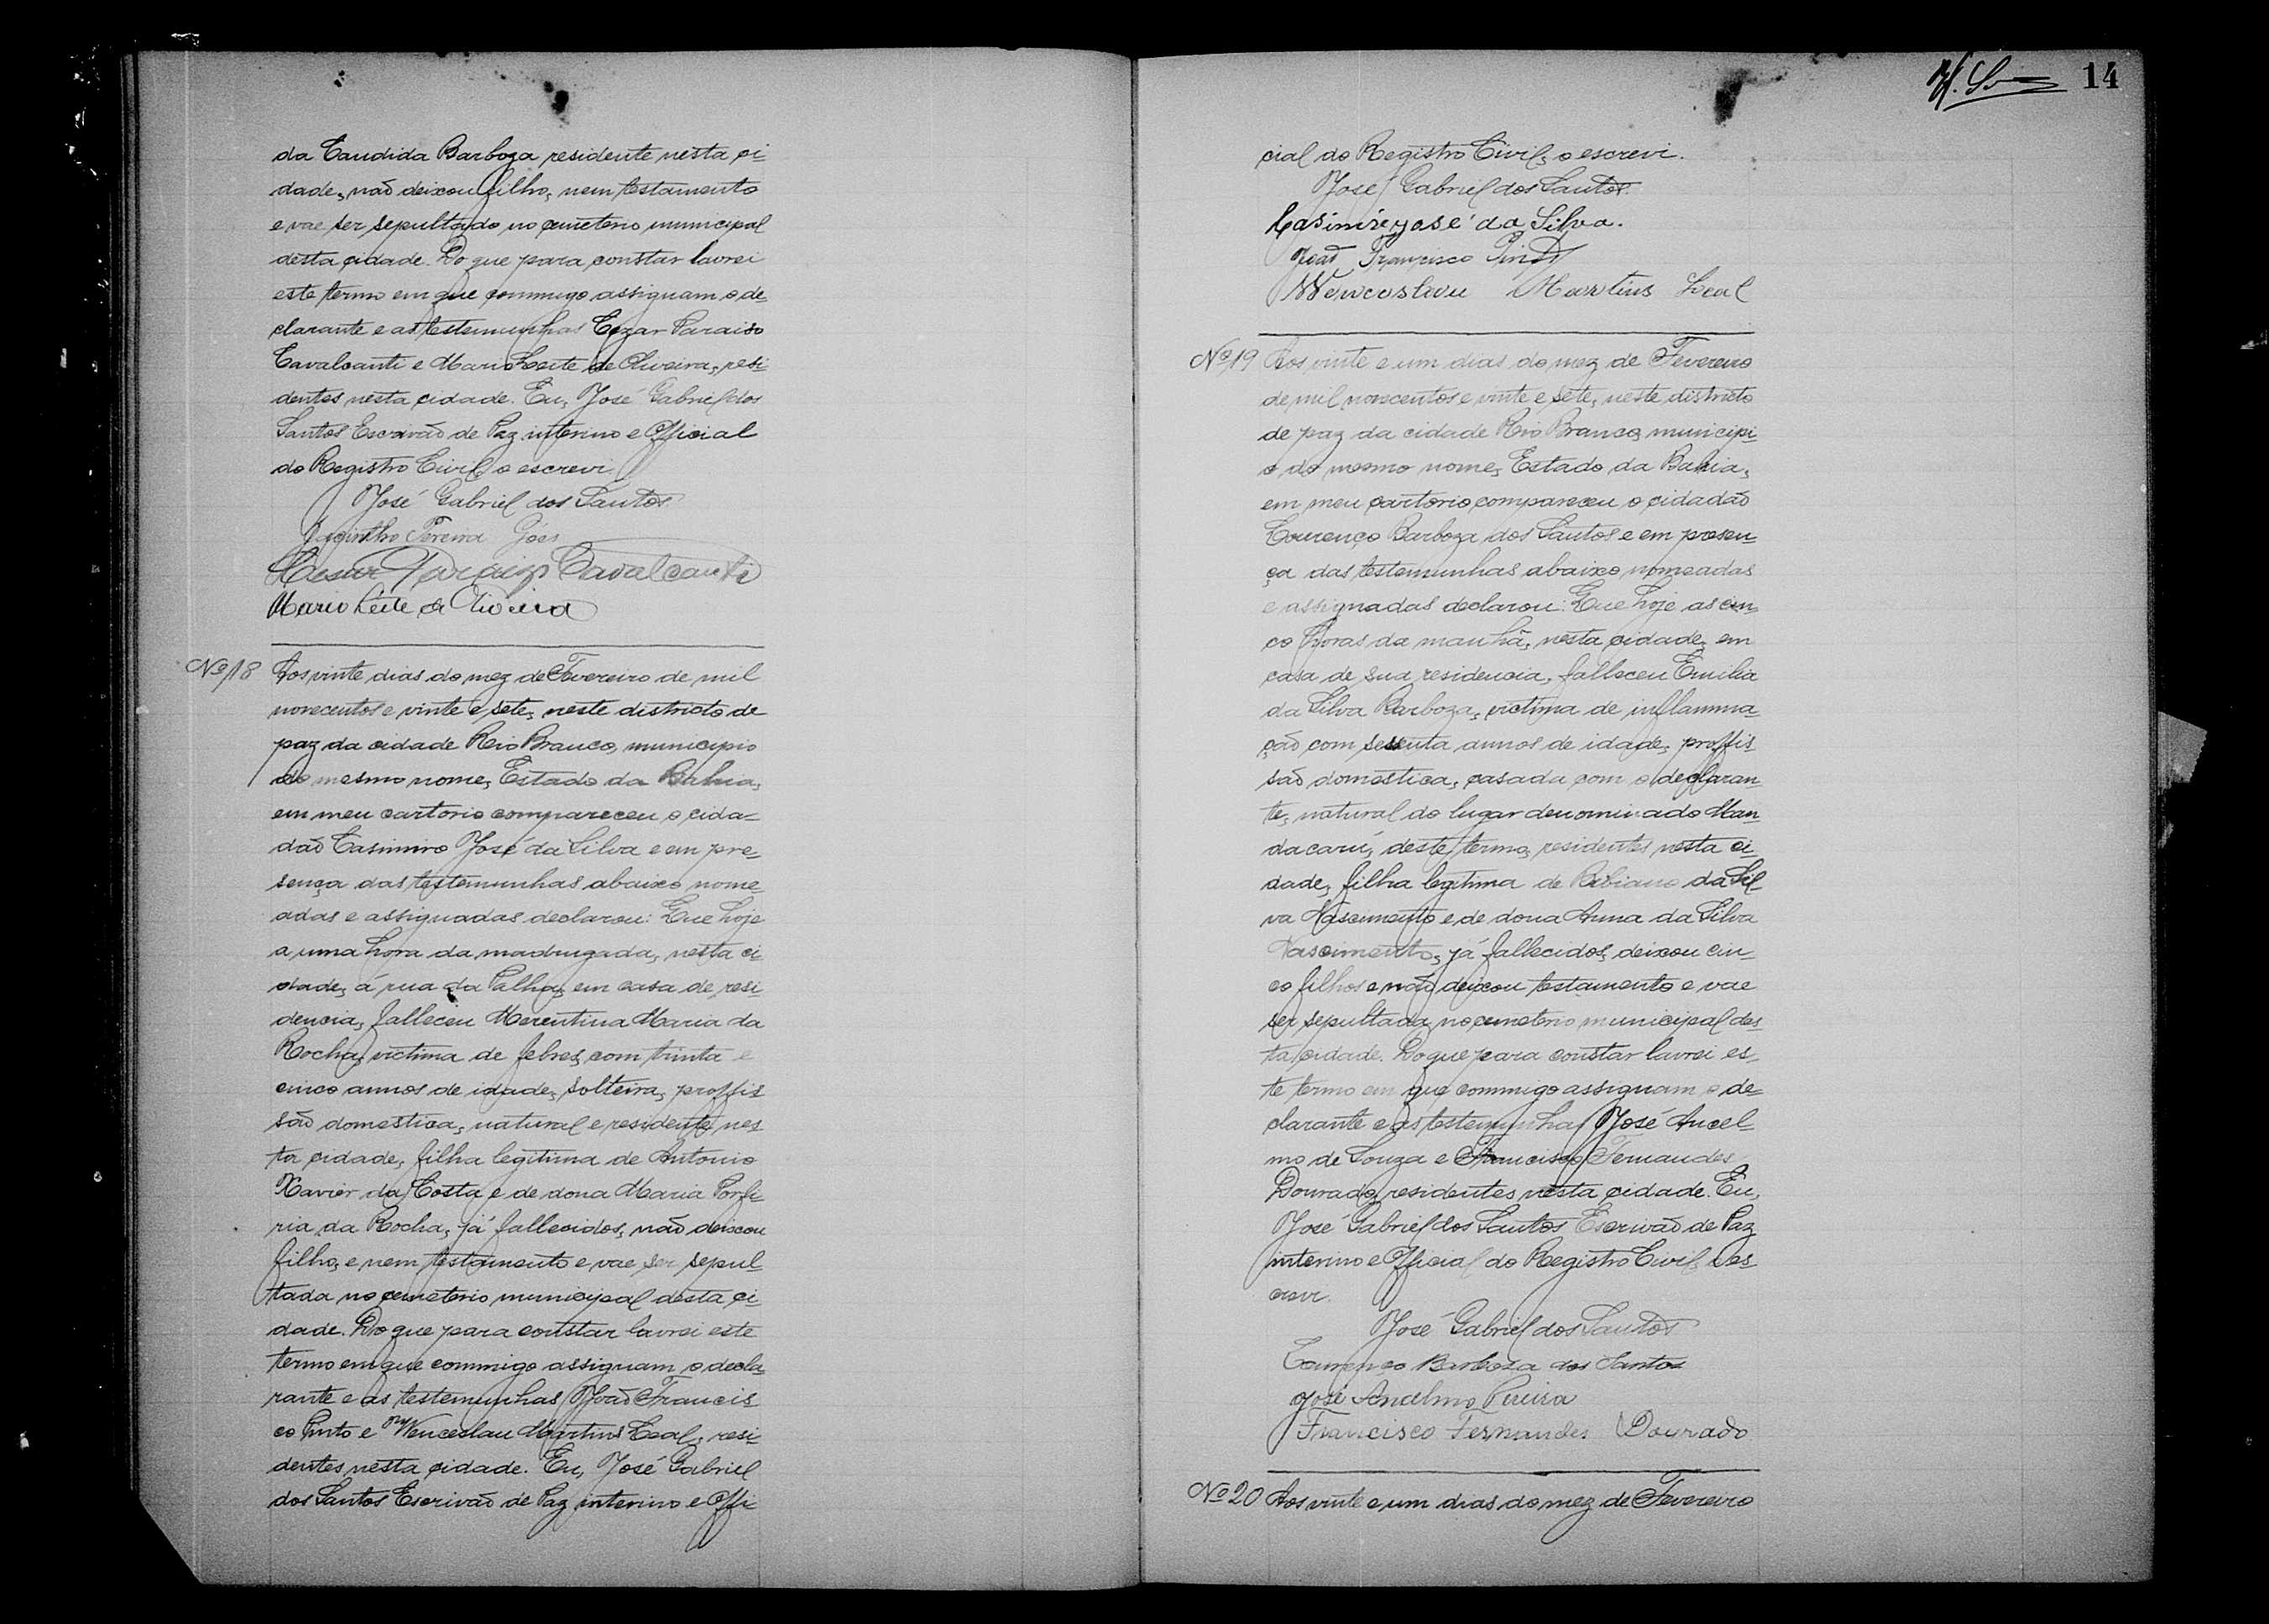 da Candida Barboza residente nesta ci-
dade, não deixou filho, nem testamento
e vae ser sepultado no cemeterio municipal
desta cidade. Do que para constar lavrei
este termo em que commigo assignam o de-
clarante e as testemunhas Cezar Paraiso
Cavalcanti e Mario Leite de Oliveira, resi-
dentes nesta cidade. Eu, José Gabriel dos
Santos Escrivão de Paz interino e Official
do Registro Civil, o escrevi.
José Gabriel dos Santos
Jacintho Pereira Góes
Cesar Paraizo Cavalcanti
Mario Leite de Oliveira
Nº 18 Aos vinte dias do mez de Fevereiro de mil
novecentos e vinte e sete, neste districto de
paz da cidade Rio Branco, municipio
do mesmo nome, Estado da Bahia,
em meu cartorio compareceu o cida-
dão Casimiro José da Silva e em pre-
sença das testemunhas abaixo nome-
adas e assignadas declarou: Que hoje
a uma hora da madrugada, nesta ci-
dade, á rua da Palha, em casa de resi-
dencia, falleceu Merentina Maria da
Rocha, victima de febres, com trinta e
cinco annos de idade, solteira, proffis-
são domestica, natural e residente nes-
ta cidade, filha legitima de Antonio
Xavier da Costa e de dona Maria Porfi-
ria da Rocha, já fallecidos, não deixou
filho, e nem testamento e vae ser sepul-
tada no cemeterio municipal desta ci-
dade. Do que para constar lavrei este
termo em que commigo assignam o decla-
rante e as testemunhas João Francis-
co Pinto e Wenceslau Martins Leal, resi-
dentes nesta cidade. Eu, José Gabriel
dos Santos Escrivão de Paz interino e Offi-
14
cial do Registro Civil, o escrevi.
José Gabriel dos Santos
Casimiro José da Silva.
João Francisco Pinto
Wenceslau Martins Leal
Nº 19 Aos vinte e um dias do mez de Fevereiro
de mil novecentos e vinte e sete, neste districto
de paz da cidade Rio Branco, municipi-
o do mesmo nome, Estado da Bahia,
em meu cartorio compareceu o cidadão
Lourenço Barboza dos Santos e em presen-
ça das testemunhas abaixo nomeadas
e assignadas declarou: Que hoje as cin-
co horas da manhã, nesta cidade, em
casa de sua residencia, falleceu Emilia
da Silva Barboza, victima de inflamma-
ção com sessenta annos de idade, proffis-
são domestica, casada com o declaran-
te, natural do lugar denominado Man-
dacarú, deste termo, residentes nesta ci-
dade, filha legitima de Bibiano da Sil-
va Nascimento e de dona Anna da Silva
Nascimento, já fallecidos, deixou cin-
co filhos e não deixou testamento e vae
ser sepultada no cemeterio municipal des-
ta cidade. Do que para constar lavrei es-
te termo em que commigo assignam o de-
clarante e as testemunhas José Ancel-
mo de Souza e Francisco Fernandes
Dourado, residentes nesta cidade. Eu,
José Gabriel dos Santos Escrivão de Paz
interino e Official do Registro Civil, o es-
crevi.
José Gabriel dos Santos
Lourenço Barboza dos Santos
José Anselmo Pereira
Francisco Fernandes Dourado
Nº 20 Aos vinte e um dias do mez de Fevereiro